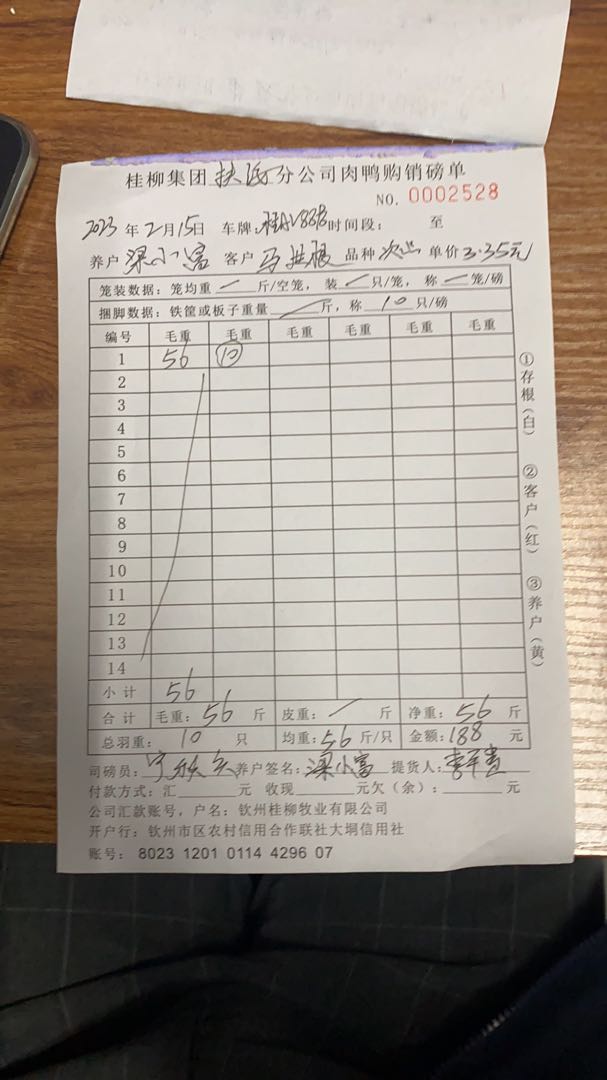 桂柳集团 分公司肉鸭购销磅单
NO. 0002528
2023年2月15日 车牌: 时间段: 至
养户 梁小富 客户 马 根 品种 次 单价 3.35元
笼装数据: 笼均重 — 斤/空笼, 装 — 只/笼, 称 — 笼/磅
捆脚数据: 铁筐或板子重量 斤, 称 10 只/磅
编号 毛重 毛重 毛重 毛重 毛重 毛重
1 56 10
2
3
4
5
6
7
8
9
10
11
12
13
14
小计 56
合计 毛重: 56 斤 皮重: / 斤 净重: 56 斤
总羽重: 10 只 均重: 5.6 斤/只 金额: 188 元
司磅员: 养户签名: 梁小富 提货人:
付款方式: 汇 元 收现 元欠(余): 元
公司汇款账号, 户名: 钦州桂柳牧业有限公司
开户行: 钦州市区农村信用合作联社大垌信用社
账号: 8023 1201 0114 4296 07
①存根(白) ②客户(红) ③养户(黄)